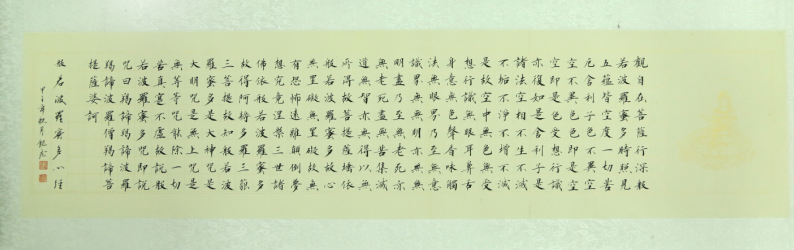 觀自在菩薩行深般
若波羅蜜多時照見
五蘊皆空度一切苦
厄舍利子色不異空
空不異色色即是空
空即是色受想行識
亦復如是舍利子是
諸法空相不生不滅
不垢不淨不增不減
是故空中無色無受
想行識無眼耳鼻舌
身意無色聲香味觸
法無眼界乃至無意
識界無無明亦無無
明盡乃至無老死亦
無老死盡無苦集滅
道無智亦無得以無
所得故菩提薩埵依
般若波羅蜜多故心
無罣礙無罣礙故無
有恐怖遠離顛倒夢
想究竟涅槃三世諸
佛依般若波羅蜜多
故得阿耨多羅三藐
三菩提故知般若波
羅蜜多是大神咒是
大明咒是無上咒是
無等等咒能除一切
苦真實不虛故說般
若波羅蜜多咒即說
咒曰羯諦羯諦波羅
羯諦波羅僧羯諦菩
提薩婆訶
般若波羅蜜多心經